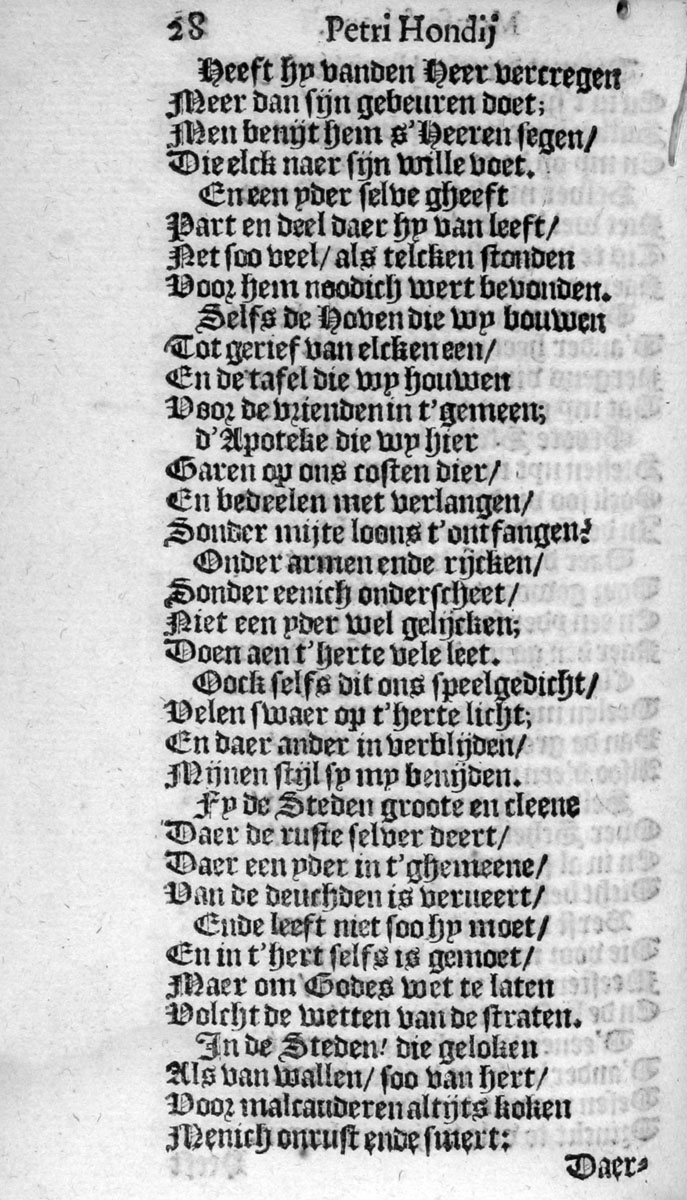 28 Petri Hondij
Heeft hy vanden Heer vercregen
Meer dan sijn gebeuren doet;
Men benijt hem s'Heeren segen/
Die elck naer sijn wille voet.
En een yder selve gheeft
Part en deel daer hy van leeft/
Net soo veel/ als telcken stonden
Voor hem noodich wert bevonden.
Selfs de Hoven die wy bouwen
Tot gerief van elcken een/
En de tafel die wy houwen
Voor de vrienden in t'gemeen;
d'Apoteke die wy hier
Garen op ons costen dier/
En bedeelen met verlangen/
Sonder mijte loons t'ontfangen:
Onder armen ende rijcken/
Sonder eenich onderscheet/
Niet een yder wel gelijcken;
Doen aen t'herte vele leet.
Oock selfs dit ons speelgedicht/
Velen swaer op t'herte licht;
En daer ander in verblijden/
Mijnen stijl sy my benijden.
Fy de Steden groote en cleene
Daer de ruste selver deert/
Daer een yder in t'ghemeene/
Van de deuchden is verueert/
Ende leeft niet soo hy moet/
En in t'hert selfs is gemoet/
Maer om Godes wet te laten
Volcht de wetten van de straten.
In de Steden/ die geloken
Als van wallen/ soo van hert/
Voor malcanderen altijts koken
Menich onrust ende smert:
Daer-